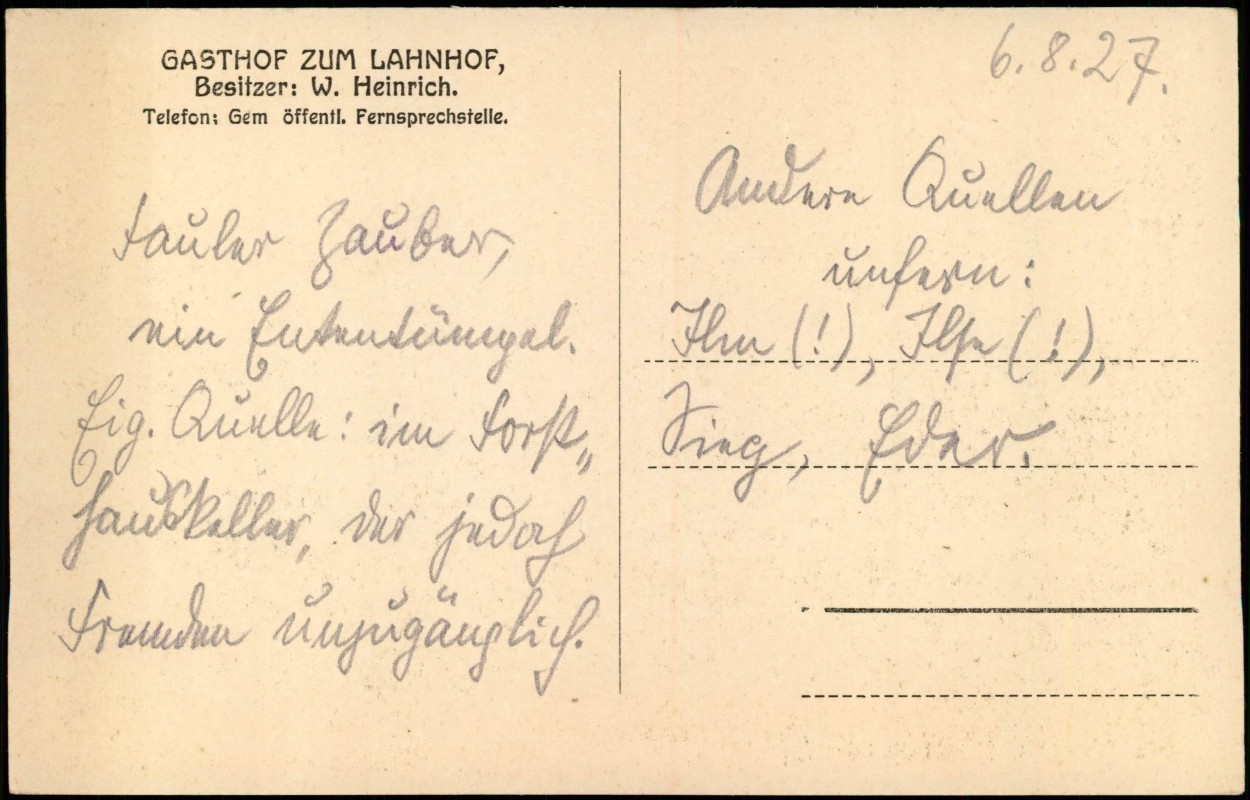 GASTHOF ZUM LAHNHOF,
Besitzer: W. Heinrich.
Telefon: Gem öffentl. Fernsprechstelle.
fauler Zauber,
ein Ententümpel.
Eig. Quelle: im Forst„
hauskeller, der jedoch
Fremden unzugänglich.
6.8.27.
Andere Quellen
unfern:
Ilm (!), Ilse (!),
Sieg, Eder.